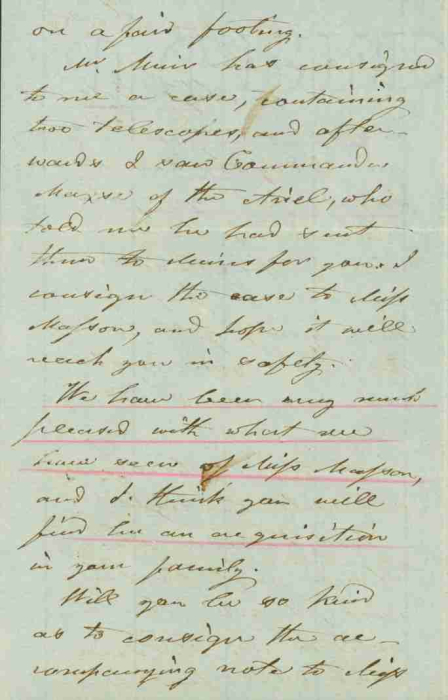 on a fair footing.
Mr. Muir has consigned
to me a case, containing
two telescopes, and after-
wards I saw Commander
Maxse of the Ariel, who
told me he had sent
them to Muirs for you. I
consign the case to Miss
Masson, and hope it will
reach you in safety.
We have been very much
pleased with what we
have seen of Miss Masson,
and I think you will
find her an acquisition
in your family.
Will you be so kind
as to consign the ac-
companying note to Miss